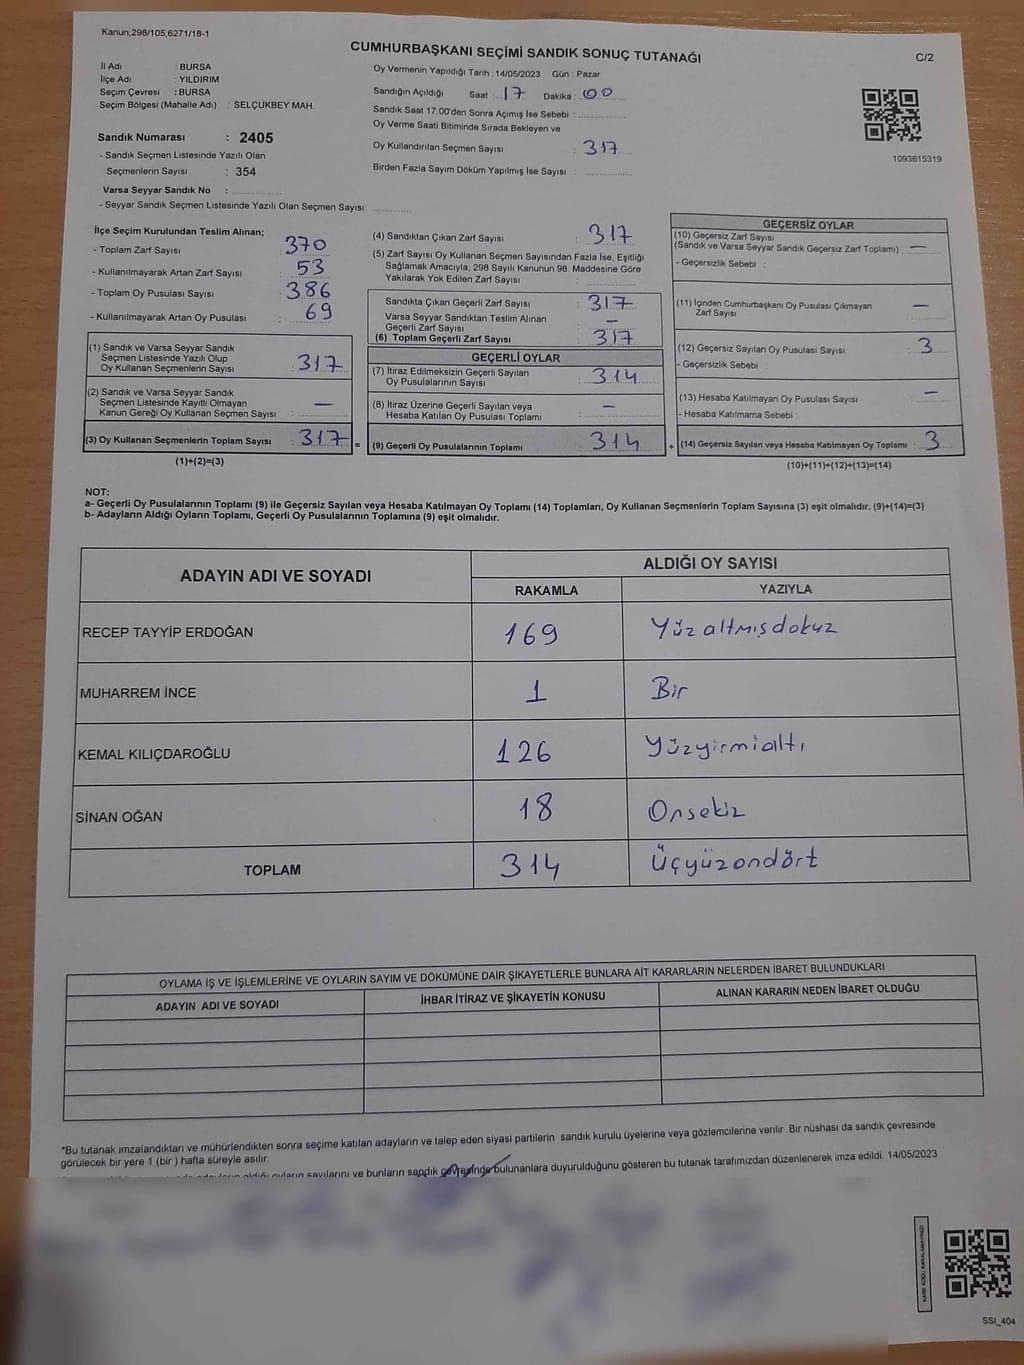 Kanun,298/105,6271/18-1
CUMHURBAŞKANI SEÇİMİ SANDIK SONUÇ TUTANAĞI
C/2
İl Adı : BURSA
İlçe Adı : YILDIRIM
Seçim Çevresi : BURSA
Seçim Bölgesi (Mahalle Adı) : SELÇUKBEY MAH.
Sandık Numarası : 2405
- Sandık Seçmen Listesinde Yazılı Olan
Seçmenlerin Sayısı : 354
Varsa Seyyar Sandık No :
- Seyyar Sandık Seçmen Listesinde Yazılı Olan Seçmen Sayısı:
Oy Vermenin Yapıldığı Tarih :14/05/2023 Gün : Pazar
Sandığın Açıldığı Saat : 17 Dakika : 00
Sandık Saat 17:00'den Sonra Açımış İse Sebebi :
Oy Verme Saati Bitiminde Sırada Bekleyen ve
Oy Kullandırılan Seçmen Sayısı : 317
Birden Fazla Sayım Döküm Yapılmış İse Sayısı :
1093615319
İlçe Seçim Kurulundan Teslim Alınan;
- Toplam Zarf Sayısı : 370
- Kullanılmayarak Artan Zarf Sayısı : 53
- Toplam Oy Pusulası Sayısı : 386
- Kullanılmayarak Artan Oy Pusulası : 69
(1) Sandık ve Varsa Seyyar Sandık
Seçmen Listesinde Yazılı Olup
Oy Kullanan Seçmenlerin Sayısı : 317
(2) Sandık ve Varsa Seyyar Sandık
Seçmen Listesinde Kayıtlı Olmayan
Kanun Gereği Oy Kullanan Seçmen Sayısı : —
(3) Oy Kullanan Seçmenlerin Toplam Sayısı : 317 =
(1)+(2)=(3)
(4) Sandıktan Çıkan Zarf Sayısı : 317
(5) Zarf Sayısı Oy Kullanan Seçmen Sayısından Fazla İse, Eşitliği
Sağlamak Amacıyla, 298 Sayılı Kanunun 98. Maddesine Göre
Yakılarak Yok Edilen Zarf Sayısı :
Sandıkta Çıkan Geçerli Zarf Sayısı : 317
Varsa Seyyar Sandıktan Teslim Alınan
Geçerli Zarf Sayısı : —
(6) Toplam Geçerli Zarf Sayısı : 317
GEÇERLİ OYLAR
(7) İtiraz Edilmeksizin Geçerli Sayılan
Oy Pusulalarının Sayısı : 314
(8) İtiraz Üzerine Geçerli Sayılan veya
Hesaba Katılan Oy Pusulası Toplamı : —
(9) Geçerli Oy Pusulalarının Toplamı : 314 +
GEÇERSİZ OYLAR
(10) Geçersiz Zarf Sayısı
(Sandık ve Varsa Seyyar Sandık Geçersiz Zarf Toplamı) : —
- Geçersizlik Sebebi :
(11) İçinden Cumhurbaşkanı Oy Pusulası Çıkmayan
Zarf Sayısı : —
(12) Geçersiz Sayılan Oy Pusulası Sayısı : 3
- Geçersizlik Sebebi :
(13) Hesaba Katılmayan Oy Pusulası Sayısı : —
- Hesaba Katılmama Sebebi :
(14) Geçersiz Sayılan veya Hesaba Katılmayan Oy Toplamı : 3
(10)+(11)+(12)+(13)=(14)
NOT:
a- Geçerli Oy Pusulalarının Toplamı (9) ile Geçersiz Sayılan veya Hesaba Katılmayan Oy Toplamı (14) Toplamları, Oy Kullanan Seçmenlerin Toplam Sayısına (3) eşit olmalıdır. (9)+(14)=(3)
b- Adayların Aldığı Oyların Toplamı, Geçerli Oy Pusulalarının Toplamına (9) eşit olmalıdır.
ADAYIN ADI VE SOYADI
ALDIĞI OY SAYISI
RAKAMLA YAZIYLA
RECEP TAYYİP ERDOĞAN 169 Yüzaltmışdokuz
MUHARREM İNCE 1 Bir
KEMAL KILIÇDAROĞLU 126 Yüzyirmialtı
SİNAN OĞAN 18 Onsekiz
TOPLAM 314 Üçyüzondört
OYLAMA İŞ VE İŞLEMLERİNE VE OYLARIN SAYIM VE DÖKÜMÜNE DAİR ŞİKAYETLERLE BUNLARA AİT KARARLARIN NELERDEN İBARET BULUNDUKLARI
ADAYIN ADI VE SOYADI İHBAR İTİRAZ VE ŞİKAYETİN KONUSU ALINAN KARARIN NEDEN İBARET OLDUĞU
*Bu tutanak imzalandıktan ve mühürlendikten sonra seçime katılan adayların ve talep eden siyasi partilerin sandık kurulu üyelerine veya gözlemcilerine verilir. Bir nüshası da sandık çevresinde
görülecek bir yere 1 (bir ) hafta süreyle asılır.
oyların sayılarını ve bunların sandık çevresinde bulunanlara duyurulduğunu gösteren bu tutanak tarafımızdan düzenlenerek imza edildi. 14/05/2023
KARE KODU KARALAMAYINIZ!
SSI_404